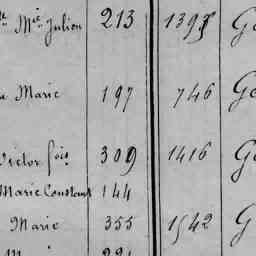 Mie Julien 213 1393 Ge
Marie 197 746 Ge
Victor fois 309 1416 Ge
Marie Constant 144
Marie 355 1542 G